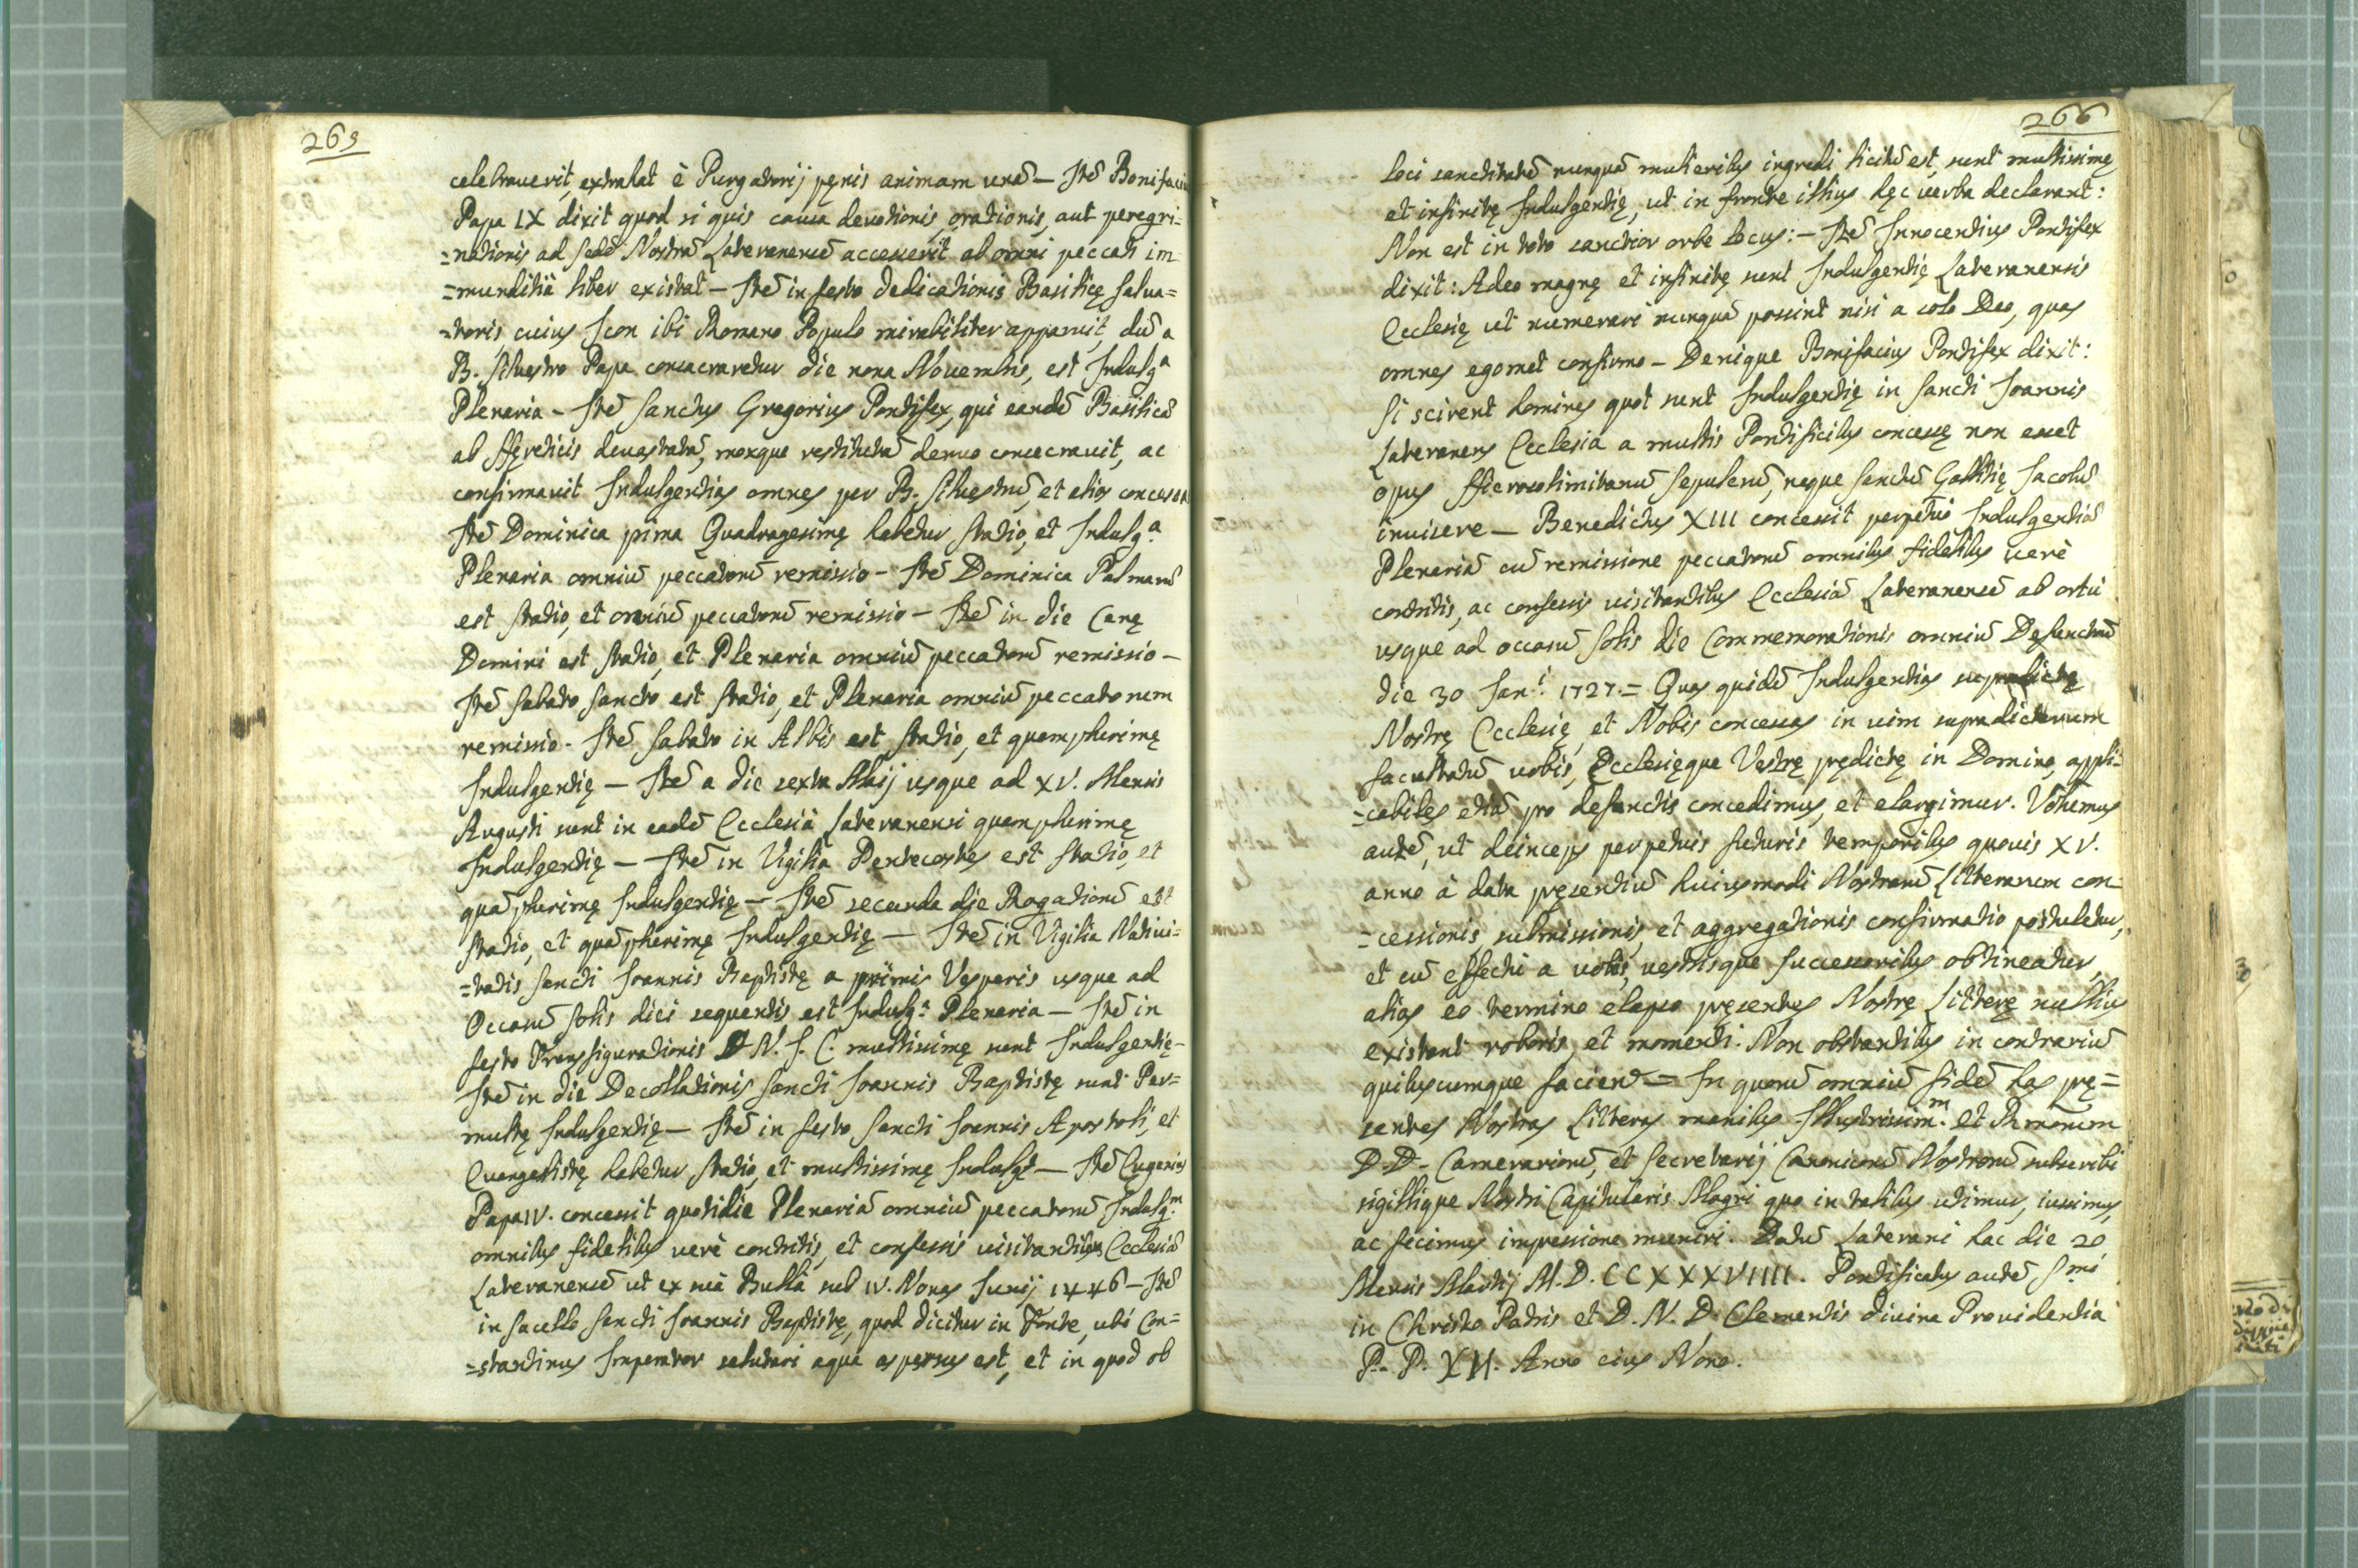 265
celebrauerit, extrahat è Purgatorij pęnis animam unā - Itē Bonifaciu
Papa IX dixit quod si quis causa devotionis, orationis, aut peregri-
=nationis ad Sedē Nostrā Lateranensē accesserit ab omni peccati im
=munditiâ liber existat - Itē in festo Dedicationis Basilicę Salua=
=toris, cuius Icon ibi Romano Populo mirabiliter apparuit, dū a
B. Siluestro Papa consacraretur die nona Nouembris, est Indulgª
Plenaria - Itē Sanctus Gregorius Pontifex, qui eandē Basilicā
ab Hęreticis deuastatā, moxque restitutā denuo consecrauit, ac
confirmauit Indulgentias omnes per B. Siluestrū, et alios concessa
Itē Dominica pima Quadragesimę habetur Statio, et Indulg.ª
Plenaria omniū peccatorū remissio - Itē Dominica Palmarū
est Statio, et omniū peccatorū remissio - Itē in die Cenę
Domini est Statio, et Plenaria omniū peccatorū remissio -
Itē Sabato Sancto est Statio, et Plenaria omniū peccatorum
remissio - Itē Sabato in Albis est Statio, et quamplurimę
Indulgentię - Itē a die sexta Maij usque ad XV. Mensis
Augusti sunt in eadē Ecclesiâ Lateranensi quamplurimę
Indulgentię - Itē in Vigilia Pentecostes est Statio, et
quā plurimę Indulgentię - Itē secunda die Rogationū est
Statio, et quā plurimę Indulgentię - Itē in Vigilia Natiui=
=tatis Sancti Ioannis Baptistę a primis Vesperis usque ad
Occasū Solis diei sequentis est Indulg.ª Plenaria - Itē in
festo Transfigurationis D. N. J. C. multissimę sunt Indulgentię-
Itē in die Decollationis Sancti Ioannis Baptistę sunt Per=
multę Indulgentię - Itē in festo Sancti Ioannis Apostoli, et
Euangelistę habetur Statio, et multissimę Indulgę - Itē Eugenius
Papa IV. concessit quotidie Plenariā omniū peccatorū Indulg.m
omnibus fidelibus verè contritis, et confessis visitantibus Ecclesiā
Lateranensē ut ex suâ Bullâ sub IV. Nonas Iunij 1446 - Itē
in Sacello Sancti Ioannis Baptistę, quod dicitur in Fonte, ubi Con=
=stantinus Imperator salutari aqua aspersus est, et in quod ob
266
loci sanctitatē nunquā mulieribus ingredi licitū est, sunt multissimę
et infinitę Indulgentię, ut in fronte illius hęc uerba declarant:
Non est in toto sanctior orbe locus: - Itē Innocentius Pontifex
dixit: Adeo magnę et infinitę sunt Indulgentię Lateranensis
Ecclesię ut numerari nunquā possint nisi a solo Deo, quas
omnes egomet confirmo - Denique Bonifacius Pontifex dixit:
Si scirent homines quot sunt Indulgentię in Sancti Ioannis
Lateranens Ecclesia a multis Pontificibus concessę non esset
opus Hierosolimitanū Sepulcrū, neque Sanctū Gallitię Iacobū
inuisere - Benedictus XIII concessit perpetuō Indulgentiā
Plenariā cū remissione peccatorū omnibus fidelibus uerè
contritis, ac confessis uisitantibus Ecclesiā Lateranensē ab ortu
usque ad occasū Solis die Commemorationis omniū Defunctorū
die 30 Jan.i 1727.= Quas quidē Indulgentias supradictę
Nostrę Ecclesię, et Nobis concessas in uim supradictarum
facultatū uobis, Ecclesięque Vestrę prędictę in Domino, appli=
=cabiles etiā pro defunctis concedimus, et elargimur. Volumus
autē, ut deinceps perpetuis futuris temporibus quouis XV.
anno à data pręsentiū huiusmodi Nostrarū Litterarum con-
=cessionis, submissionis, et aggregationis confirmatio postuletur,
et cū effectu a uobis, uestrisque Successoribus obtineatur,
alias eo termino elapso pręsentes Nostrę Litterę nullius
existant roboris, et momenti. Non obstantibus in contrariū
quibuscumque facient = In quorū omniū fidē has prę=
sentes Nostras Litteras manibus Illustrissim.m et Rmorum
D.D. Camerariorū, et Secretarij Canonicorū Nostrorū subscribi
sigillique Nostri Capitularis Magni quo in talibus utimur, iussimus,
ac fecimus impressione muniri. Datū Laterani hac die 20
Mensis Martij M.D.CCXXXVIIII. Pontificatus autē Smi
in Christo Patris et D. N. D. Clementis diuina Prouidentia
P.. P. XII. Anno eius Nono.